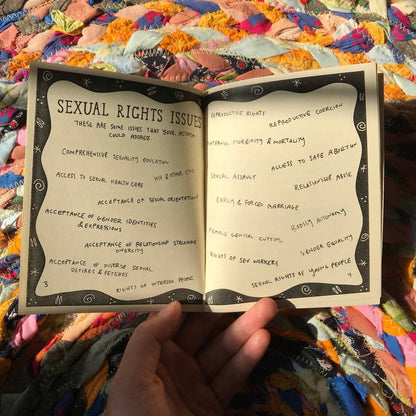 SEXUAL RIGHTS ISSUES
THESE ARE SOME ISSUES THAT YOUR ACTIVISM
COULD ADDRESS
COMPREHENSIVE SEXUALITY EDUCATION
ACCESS TO SEXUAL HEALTH CARE
HIV & OTHER STIs
ACCEPTANCE OF SEXUAL ORIENTATIONS
ACCEPTANCE OF GENDER IDENTITIES
& EXPRESSIONS
ACCEPTANCE OF RELATIONSHIP STRUCTURE
DIVERSITY
ACCEPTANCE OF DIVERSE SEXUAL
DESIRES & FETISHES
RIGHTS OF INTERSEX PEOPLE
3
REPRODUCTIVE RIGHTS
REPRODUCTIVE COERCION
MATERNAL MORBIDITY & MORTALITY
ACCESS TO SAFE ABORTION
SEXUAL ASSAULT
RELATIONSHIP ABUSE
EARLY & FORCED MARRIAGE
BODILY AUTONOMY
FEMALE GENITAL CUTTING
GENDER EQUALITY
RIGHTS OF SEX WORKERS
SEXUAL RIGHTS OF YOUNG PEOPLE
4